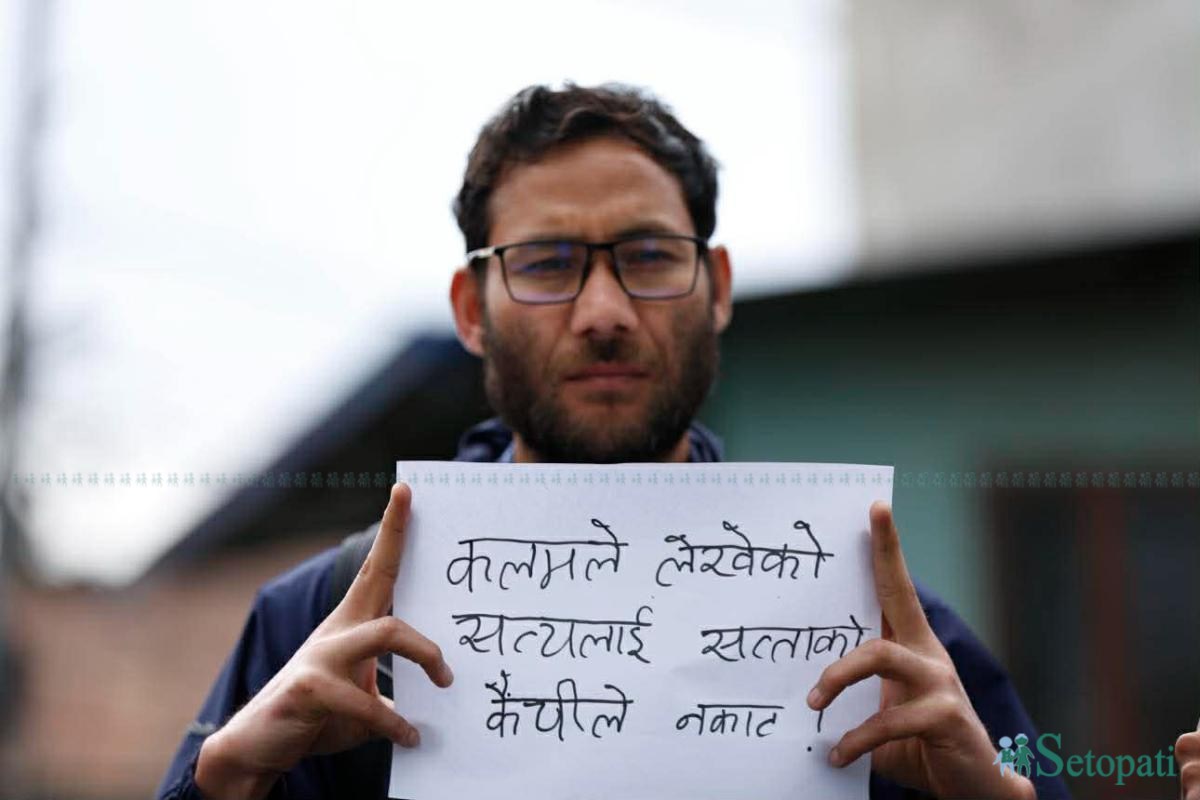 कलमले लेखेको
सत्यलाई सत्ताको
कैंचीले नकाट !
Setopati